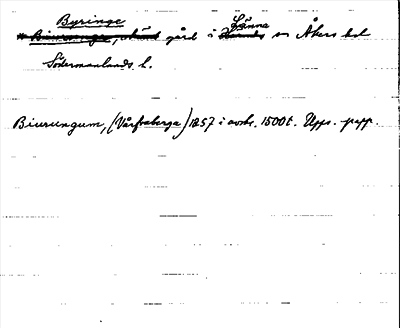 Byringe
gård i Länna sn Åkers hd
Södermanlands l.
Biurungum, (Vårfruberga) 1257 i avskr. 1500t. Upps. papp.